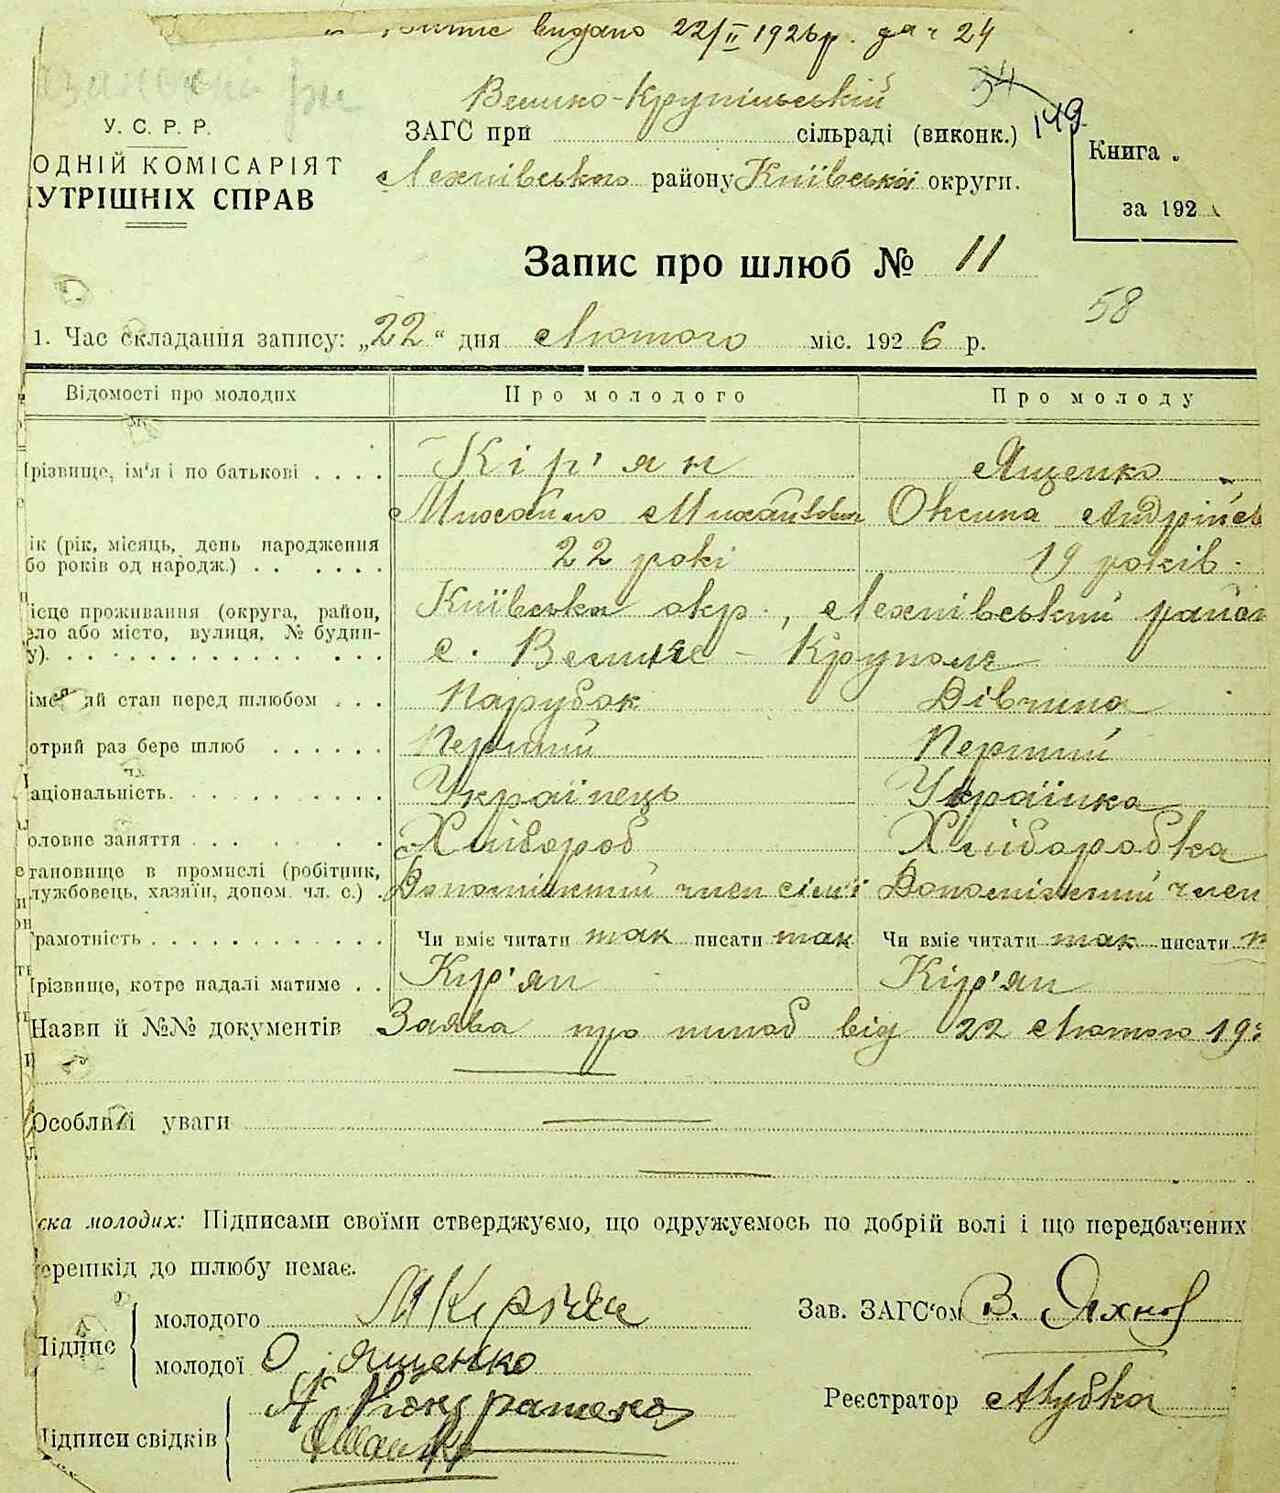 видано 22/II 1926 р. за ч 24
Велико-Крупільській
34
149
У. С. Р. Р.
ЗАГС при сільраді (виконк.)
ОДНІЙ КОМІСАРІЯТ
УТРІШНІХ СПРАВ
Лехнівського району Київської округи.
Книга
за 192
Запис про шлюб № 11
58
1. Час складання запису: „22“ дня Лютого міс. 1926 р.
Відомості про молодих Про молодого Про молоду
різвище, ім'я і по батькові . . . . Кір'ян Ященко
Михайло Михайлович Оксина Андріїв
ік (рік, місяць, день народження
бо років од народж.) . . . . . . 22 рокі 19 років.
ісце проживання (округа, район,
ело або місто, вулиця, № будин-
у). . . . . . . . . . . . . . Київська окр., Лехнівський район
с. Велике-Круполє
імейний стан перед шлюбом . . . Парубок Дівчина
отрий раз бере шлюб . . . . . . Перший Перший
аціональність. . . . . . . . . . Українець Українка
оловне заняття . . . . . . . . . Хлібороб Хліборобка
тановище в промислі (робітник,
лужбовець, хазяїн, допом. чл. с.) . Допоміжний член сім'ї Допоміжний член
рамотність . . . . . . . . . . . Чи вміє читати так писати так Чи вміє читати так писати
різвище, котре надалі матиме . . Кір'ян Кір'ян
Назви й №№ документів Заява про шлюб від 22 Лютого 19
Особливі уваги
ска молодих: Підписами своїми стверджуємо, що одружуємось по добрій волі і що передбачених
ерешкід до шлюбу немає.
Підпис молодого М Кирьян Зав. ЗАГС'ом В.
молодої О. Ященко
Реєстратор
Підписи свідків А. Кондратенко